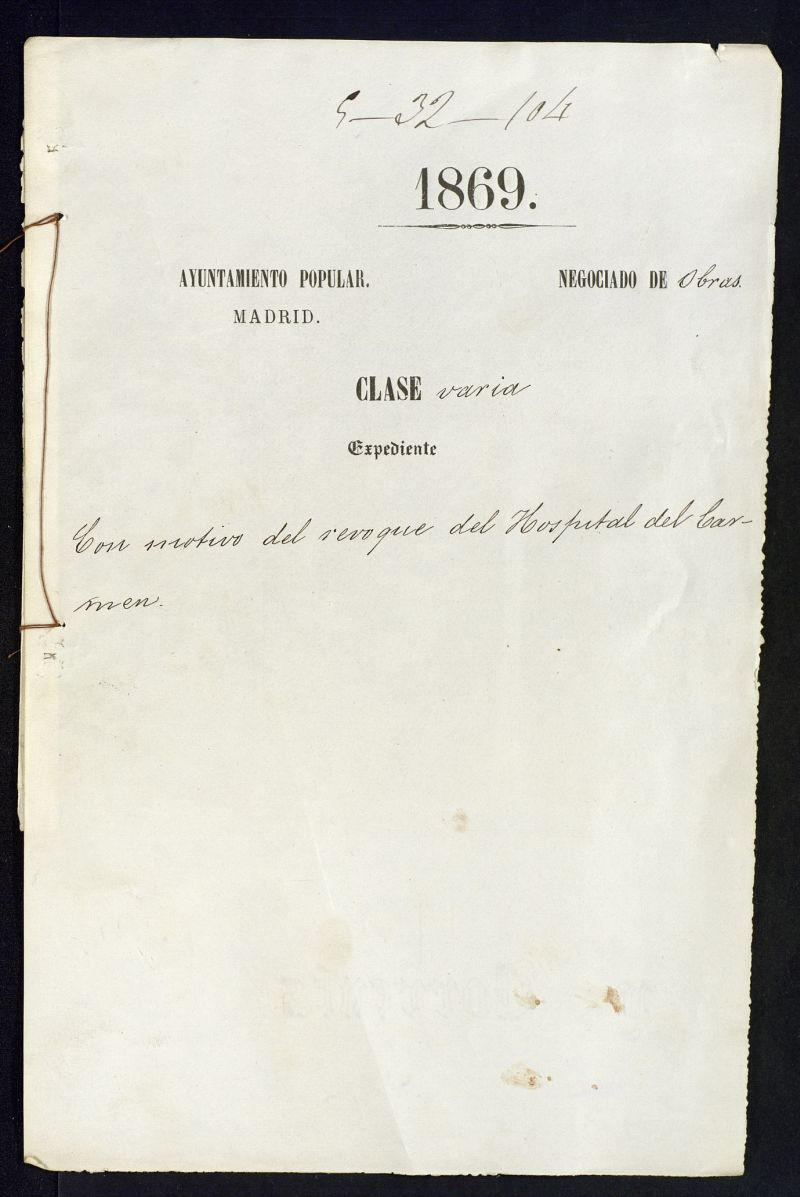 5-32-104
1869.
AYUNTAMIENTO POPULAR.
MADRID.
NEGOCIADO DE Obras.
CLASE varia
Expediente
Con motivo del revoque del Hospital del Car-
men.